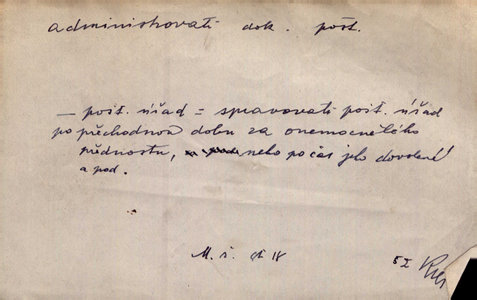 administrovati dok. pošt.
— pošt. úřad = spravovati pošt. úřad
po přechodnou dobu za onemocnělého
přednostu, nebo po čas jeho dovolené
a pod.
M. s.
5 I